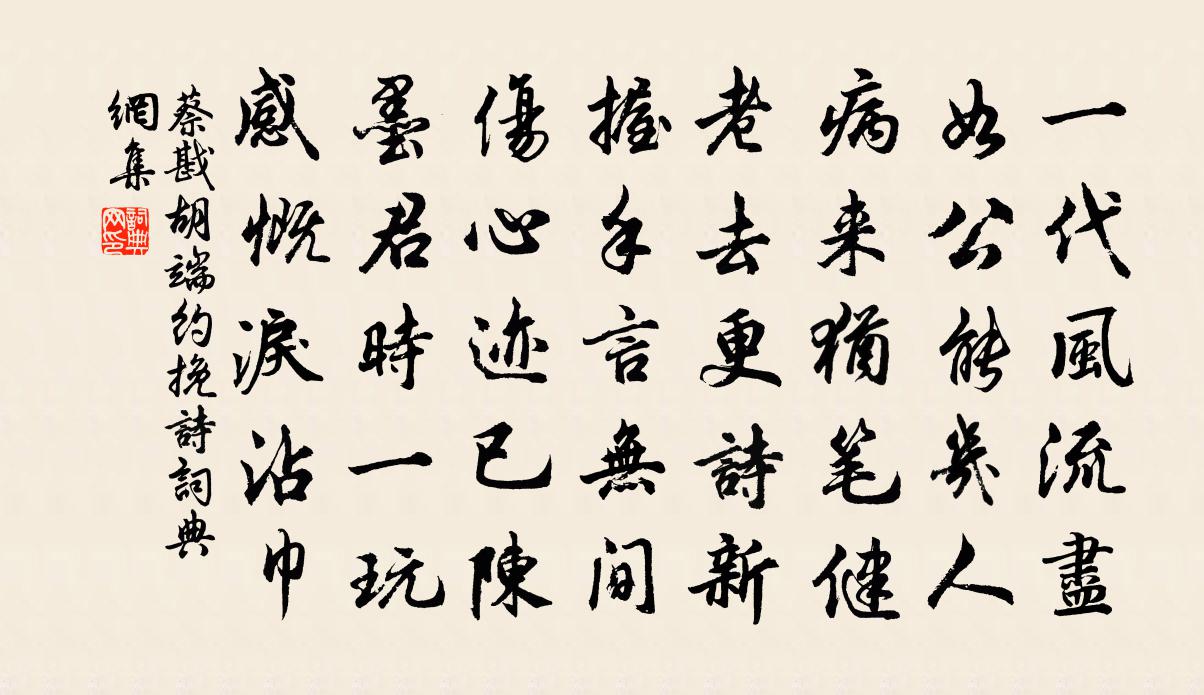 一代風流盡
如公能幾人
病来猶笔健
老去更詩新
握手言無間
傷心迹已陳
墨君時一玩
感慨淚沾巾
蔡戡胡端約挽詩詞典
網集
詞典
网印